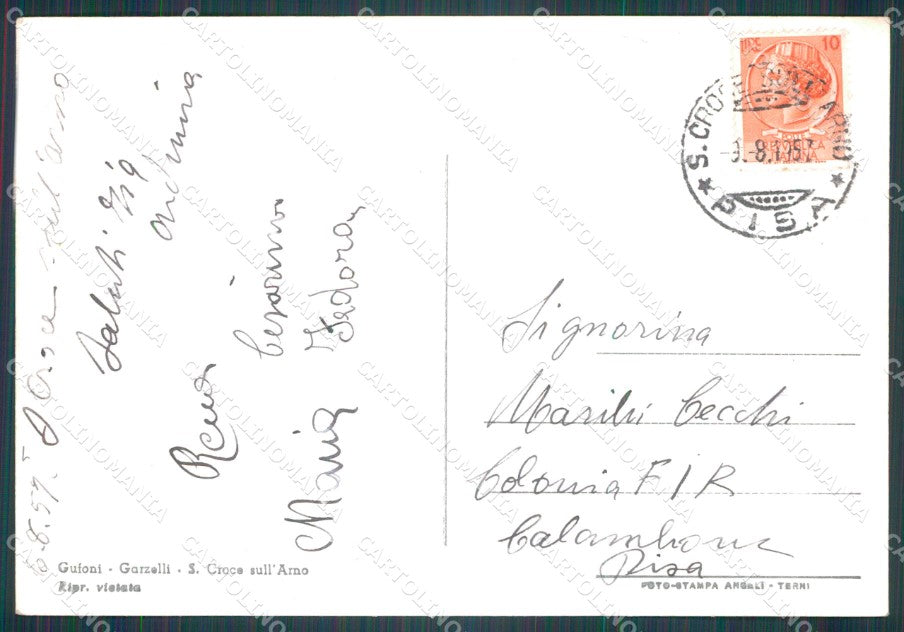 8.57. S. Croce sull'Arno
Saluti Zia
Onelmina
Renzo
Cesarino
Maria Fedora
Gufoni - Garzelli - S. Croce sull'Arno
Ripr. vietata
LIRE 10
S. CROCE SULL'ARNO
-8.1957
PISA
Signorina
Marilù Cecchi
Colonia F I R
Calambrone
Pisa
FOTO-STAMPA ANGELI - TERNI
CARTOLINOMANIA